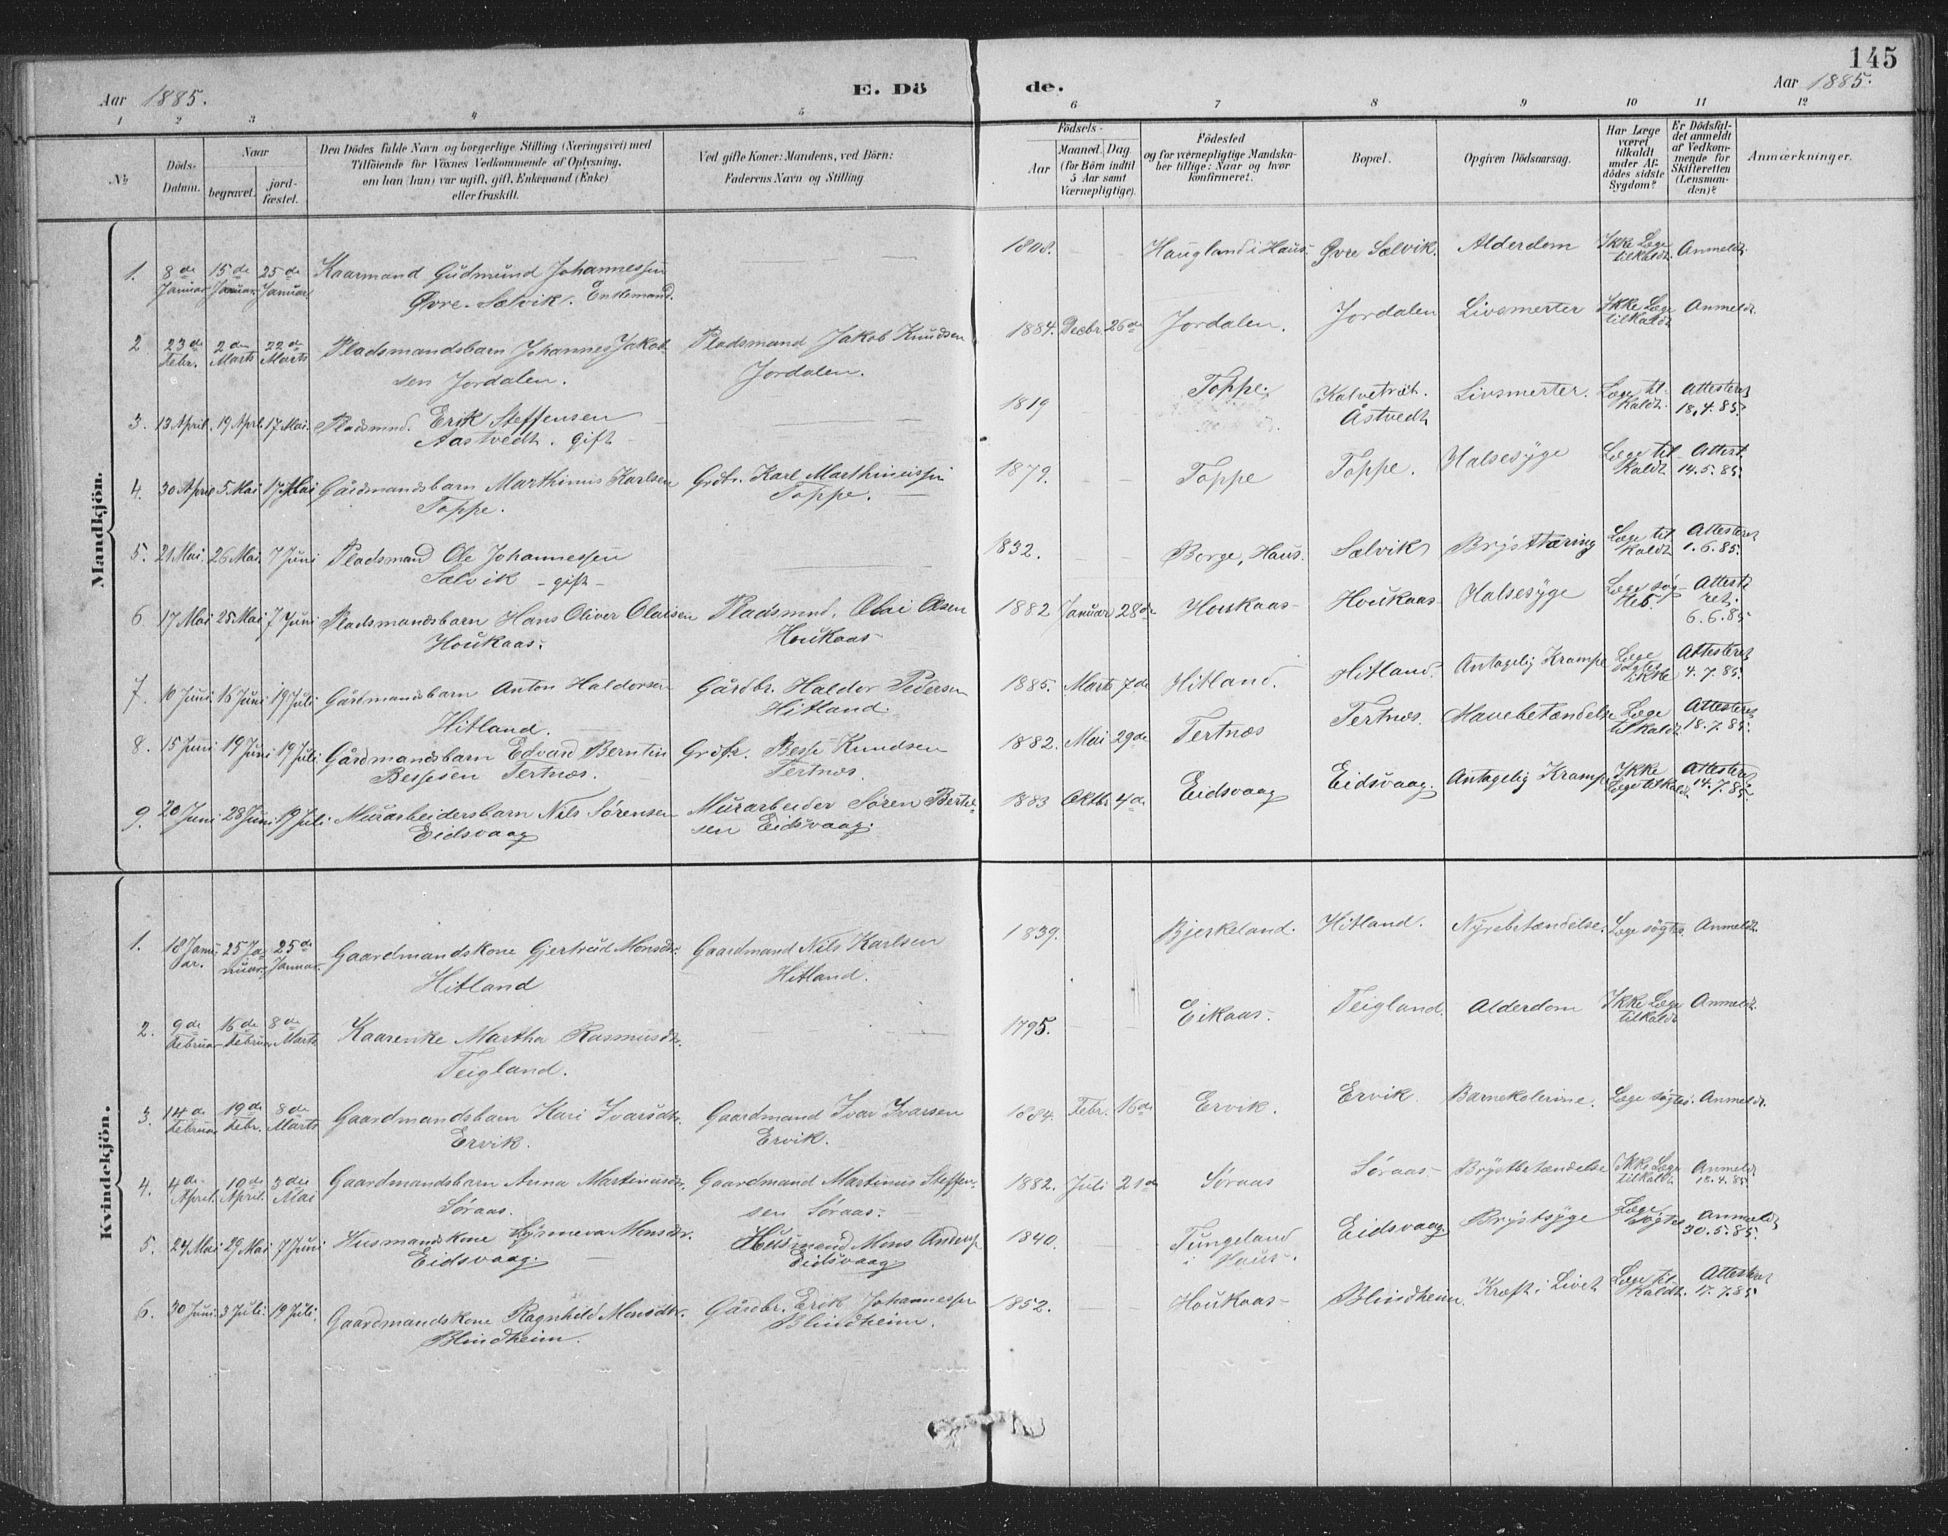 145
Aar 1885. E. Dö de. Aar 1885.
1 2 3 4 5 6 7 8 9 10 11 12
№
Döds-
Datum.
Naar
begravet.
jord-
fæstet.
Den Dödes fulde Navn og borgerlige Stilling (Næringsvei) med
Tilföiende for Voxnes Vedkommende af Oplysning,
om han (hun) var ugift, gift, Enkemand (Enke)
eller fraskilt.
Ved gifte Koner: Mandens, ved Börn:
Faderens Navn og Stilling
Födsels-
Aar
Maaned. Dag.
(for Börn indtil
5 Aar samt
Værnepligtige).
Födested
og for værnepligtige Mandska-
ber tillige: Naar og hvor
konfirmeret.
Bopæl.
Opgiven Dödsaarsag.
Har Læge
været
tilkaldt
under Af-
dödes sidste
Sygdom?
Er Dödsfal-
det anmeldt
af Vedkom-
mende for
Skifteretten
(Lensman-
den)?
Anmærkninger.
Mandkjön.
1. 8de Januar 15de Januar 25de Januar Kaarmand Gudmund Johannessen 1808. Haugland i Haus Øvre Sælvik. Alderdom Ikke Læge tilkaldt Anmeldt.
Øvre Sælvik. Enkemand.
2 23de Febr. 2den Marts 22de Marts Pladsmandsbarn Johannes Jakob- Pladsmand Jakob Knudsen 1884. Decbr. 26de Jordalen. Jordalen Livsmerter Ikke Læge tilkaldt Anmeldt.
sen Jordalen. Jordalen.
3. 13 April. 19 April. 17 Mai. Pladsmnd. Erik Steffensen 1819 Toppe. Kalvetræt. Åstvedt Livsmerter. Læge til- kaldt. Attesteret 18.4.85.
Aastvedt. gift
4. 30 April 5 Mai 17 Mai Gårdmandsbarn Marthinus Karlsen Grdbr. Karl Marthinussen 1879. Toppe Toppe. Halsesyge Læge til kaldt Attest. 14.5.85.
Toppe. Toppe.
5. 21 Mai 26 Mai 7 Juni Pladsmand Ole Johannessen 1832. Borge, Haus. Sælvik Brysttæring Læge til kaldt Attesteret 1.6.85.
Sælvik - gift -
6 17 Mai 25 Mai 7 Juni Pladsmandsbarn Hans Oliver Olaisen Pladsmnd. Olai Olsen 1882 Januar 28de Houkaas Houkaas Halsesyge Læge søg- tes. Atteste ret. 6.6.85
Houkaas. Houkaas
7. 10 Juni 16 Juni 19 Juli Gårdmandsbarn Anton Haldorsen Gårdbr. Haldor Pedersen 1885. Marts 7de Hitland. Hitland. Antagelig Krampe Læge søgtes ikke Attesteret 4.7.85.
Hitland. Hitland.
8. 15 Juni 19 Juni 19 Juli Gårdmandsbarn Edvard Berntin Grdbr. Besse Knudsen 1882. Mai 29de Tertnæs Tertnæs. Mavebetændelse Læge tilkaldt Attesteret 18.7.85.
Bessesen Tertnæs. Tertnæs.
9. 20 Juni 28 Juni 19 Juli Murarbeidersbarn Nils Sørensen Murarbeider Søren Bertel- 1883 Oktbr. 4de Eidsvaag Eidsvaag. Antagelig Krampe Ikke Læge tilkaldt. Attesteret 14.7.85.
Eidsvaag sen Eidsvaag.
Kvindekjön.
1. 18 Janu ar. 25 Ja- nuar. 25de Januar. Gaardmandskone Gjertrud Monsdtr. Gaardmand Nils Karlsen 1839. Bjerkeland. Hitland. Nyrebetændelse. Læge søgtes. Anmeldt.
Hitland Hitland.
2. 9de Februar 16de Februar 8de Marts Kaarenke Martha Rasmusdtr. 1795. Eikaas. Teigland. Alderdom Ikke Læge tilkaldt Anmeldt.
Teigland.
3. 14de Februar 19de Febr. 8de Marts Gaardmandsbarn Kari Ivarsdtr. Gaardmand Ivar Ivarsen 1884. Febr. 16de Ervik. Ervik. Barnekolerine. Læge søgtes. Anmeldt.
Ervik. Ervik.
4. 4de April. 10de April. 3die Mai Gaardmandsbarn Anna Martinusdtr. Gaardmand Martinus Steffen- 1882. Juli 21de Søraas Søraas Brystbetændelse Ikke Læge tilkaldt. Anmeldt 18.4.85
Søraas. sen Søraas.
5. 24 Mai 29 Mai 7 Juni Husmandskone Synneva Monsdtr. Husmand Mons Anders 1840. Tungeland i Haus. Eidsvaag. Brystsyge Læge søgtes Anmeldt 30.5.85.
Eidsvaag. Eidsvaag
6. 30 Juni 3 Juli 19 Juli. Gaardmandskone Ragnhild Monsdtr. Gårdbr. Erik Johannessen 1852. Houkaas Blindheim. Kræft i Livet Læge til- kaldt. Attesteret 17.7.85
Blindheim. Blindheim.